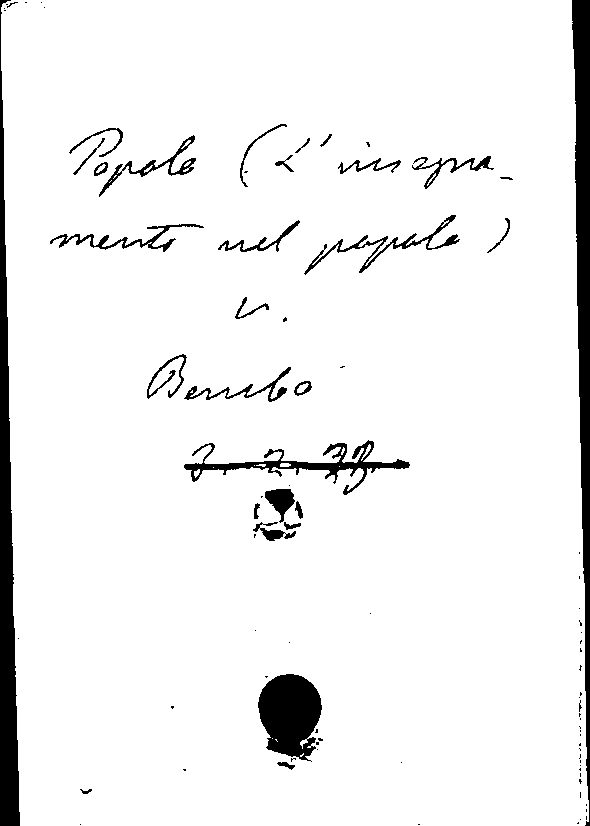 Popolo (L'insegna-
mento nel popolo)
v.
Bembo
3. 2. 73.